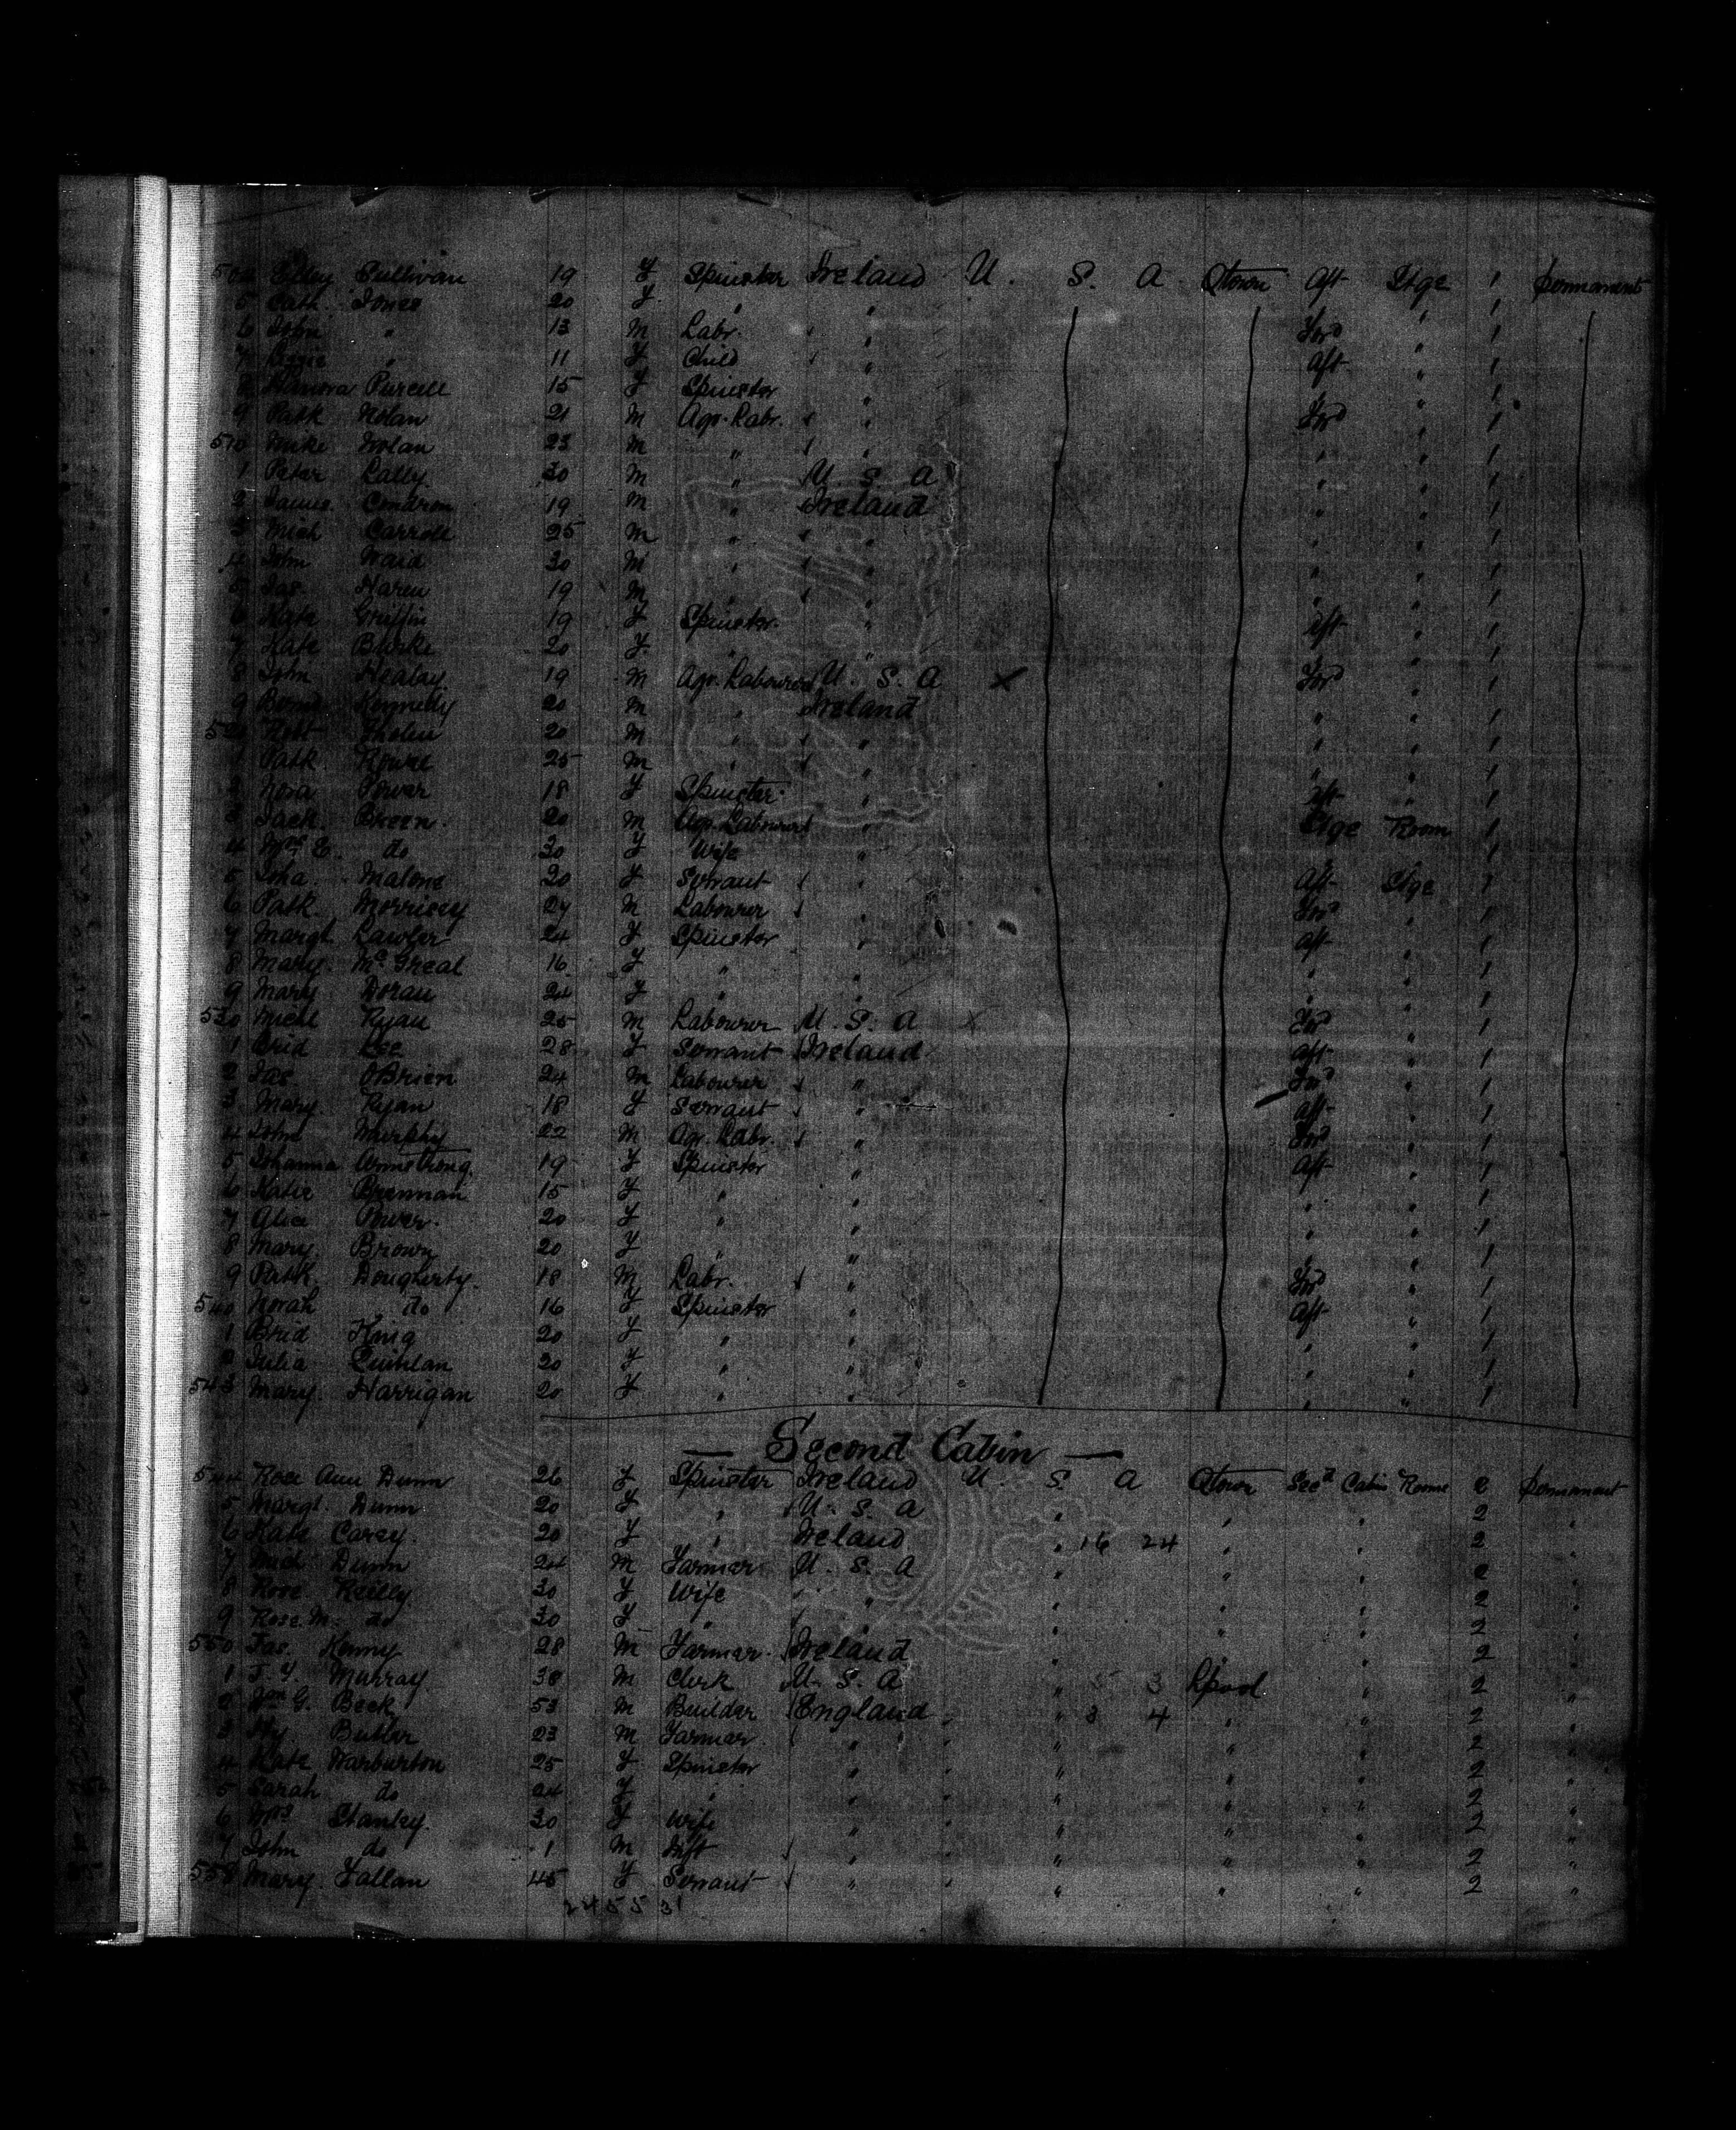 504 Sullivan 19 F Spinster Ireland U. S. A. Qtown Aft Stge 1 permanent
5 Cath. Jones 20 F " " " 1
6 John " 13 M Labr. " " Ford " 1
7 " 11 F Child " " Aft " 1
8 Hanora Purcell 15 F Spinster " " 1
9 Patk Nolan 21 M Agr. Labr. " " Ford " 1
510 Mike Nolan 23 M " " " " " 1
1 Peter Lally 30 M " U S A " " 1
2 James Condron 19 M " Ireland " " 1
3 Mich Carroll 25 M " " " " " 1
4 John Ward 30 M " " " " " 1
5 Jas. Haren 19 M " " " " " 1
6 Kate Griffin 19 F Spinster " Aft " 1
7 Kate Burke 20 F " " " 1
8 John Healey 19 M Agr. Labourer U. S. A X Ford " 1
9 Kennelly 20 M " Ireland " " 1
520 Robt 20 M " " " " " 1
1 Patk. 25 M " " " " " 1
2 Nora Power 18 F Spinster " Aft " 1
3 Jack Breen. 20 M Agr. Labourer " Stge Room 1
4 Mrs E. do 30 F Wife " 1
5 Joha. Malone 20 F Servant " " Aft Stge 1
6 Patk. Morrisey 27 M Labourer " " Ford " 1
7 Margt. Lawler 24 F Spinster " Aft " 1
8 Mary. McGreal 16 F " " " " 1
9 Mary Doran 24 F " " " " 1
530 Michl Ryan 25 M Labourer U. S. A X Ford " 1
1 Brid Lee 28 F Servant Ireland Aft " 1
2 Jas. OBrien 24 M Labourer " " Ford " 1
3 Mary. Ryan 18 F Servant " " Aft " 1
4 John Murphy 22 M Agr. Labr. " " Ford " 1
5 Johanna Armstrong. 19 F Spinster " Aft " 1
6 Katie Brennan 15 F " " " " 1
7 Alice Power. 20 F " " " " 1
8 Mary. Brown 20 F " " " " 1
9 Patk. Dougherty. 18 M Labr. " " Ford " 1
540 Norah do 16 F Spinster " Aft " 1
1 Brid King 20 F " " " " 1
2 Julia Quinlan 20 F " " " " 1
543 Mary. Harrigan 20 F " " " " 1
— Second Cabin —
544 Rose Ann Dunn 26 F Spinster Ireland U. S. A Qtown Secd Cabin Rooms 2 permanent
5 Margt. Dunn 20 F " U. S. A " " " 2 "
6 Kate Carey. 20 F " Ireland " 16 24 " " 2 "
7 Mich Dunn 24 M Farmer U. S. A " " " 2 "
8 Rose Reilly 30 F Wife " " " " " 2 "
9 Rose. M. do 30 F " " " " " " 2 "
550 Jas. Kenny 28 M Farmer. Ireland " " " 2 "
1 J. Y. Murray 38 M Clerk U. S. A " 3 Lpool " 2 "
2 Jon G. Beck 53 M Builder England " " 3 4 " " 2 "
3 Hy. Butler 23 M Farmer. " " " " " 2 "
4 Kate Warburton 25 F Spinster " " " " " 2 "
5 Sarah do 24 F " " " " " " 2 "
6 Mrs Stanley. 30 F Wife " " " " " 2 "
7 John do 1 M Inft " " " " " 2 "
558 Mary. Fallan 45 F Servant " " " " " " 2 "